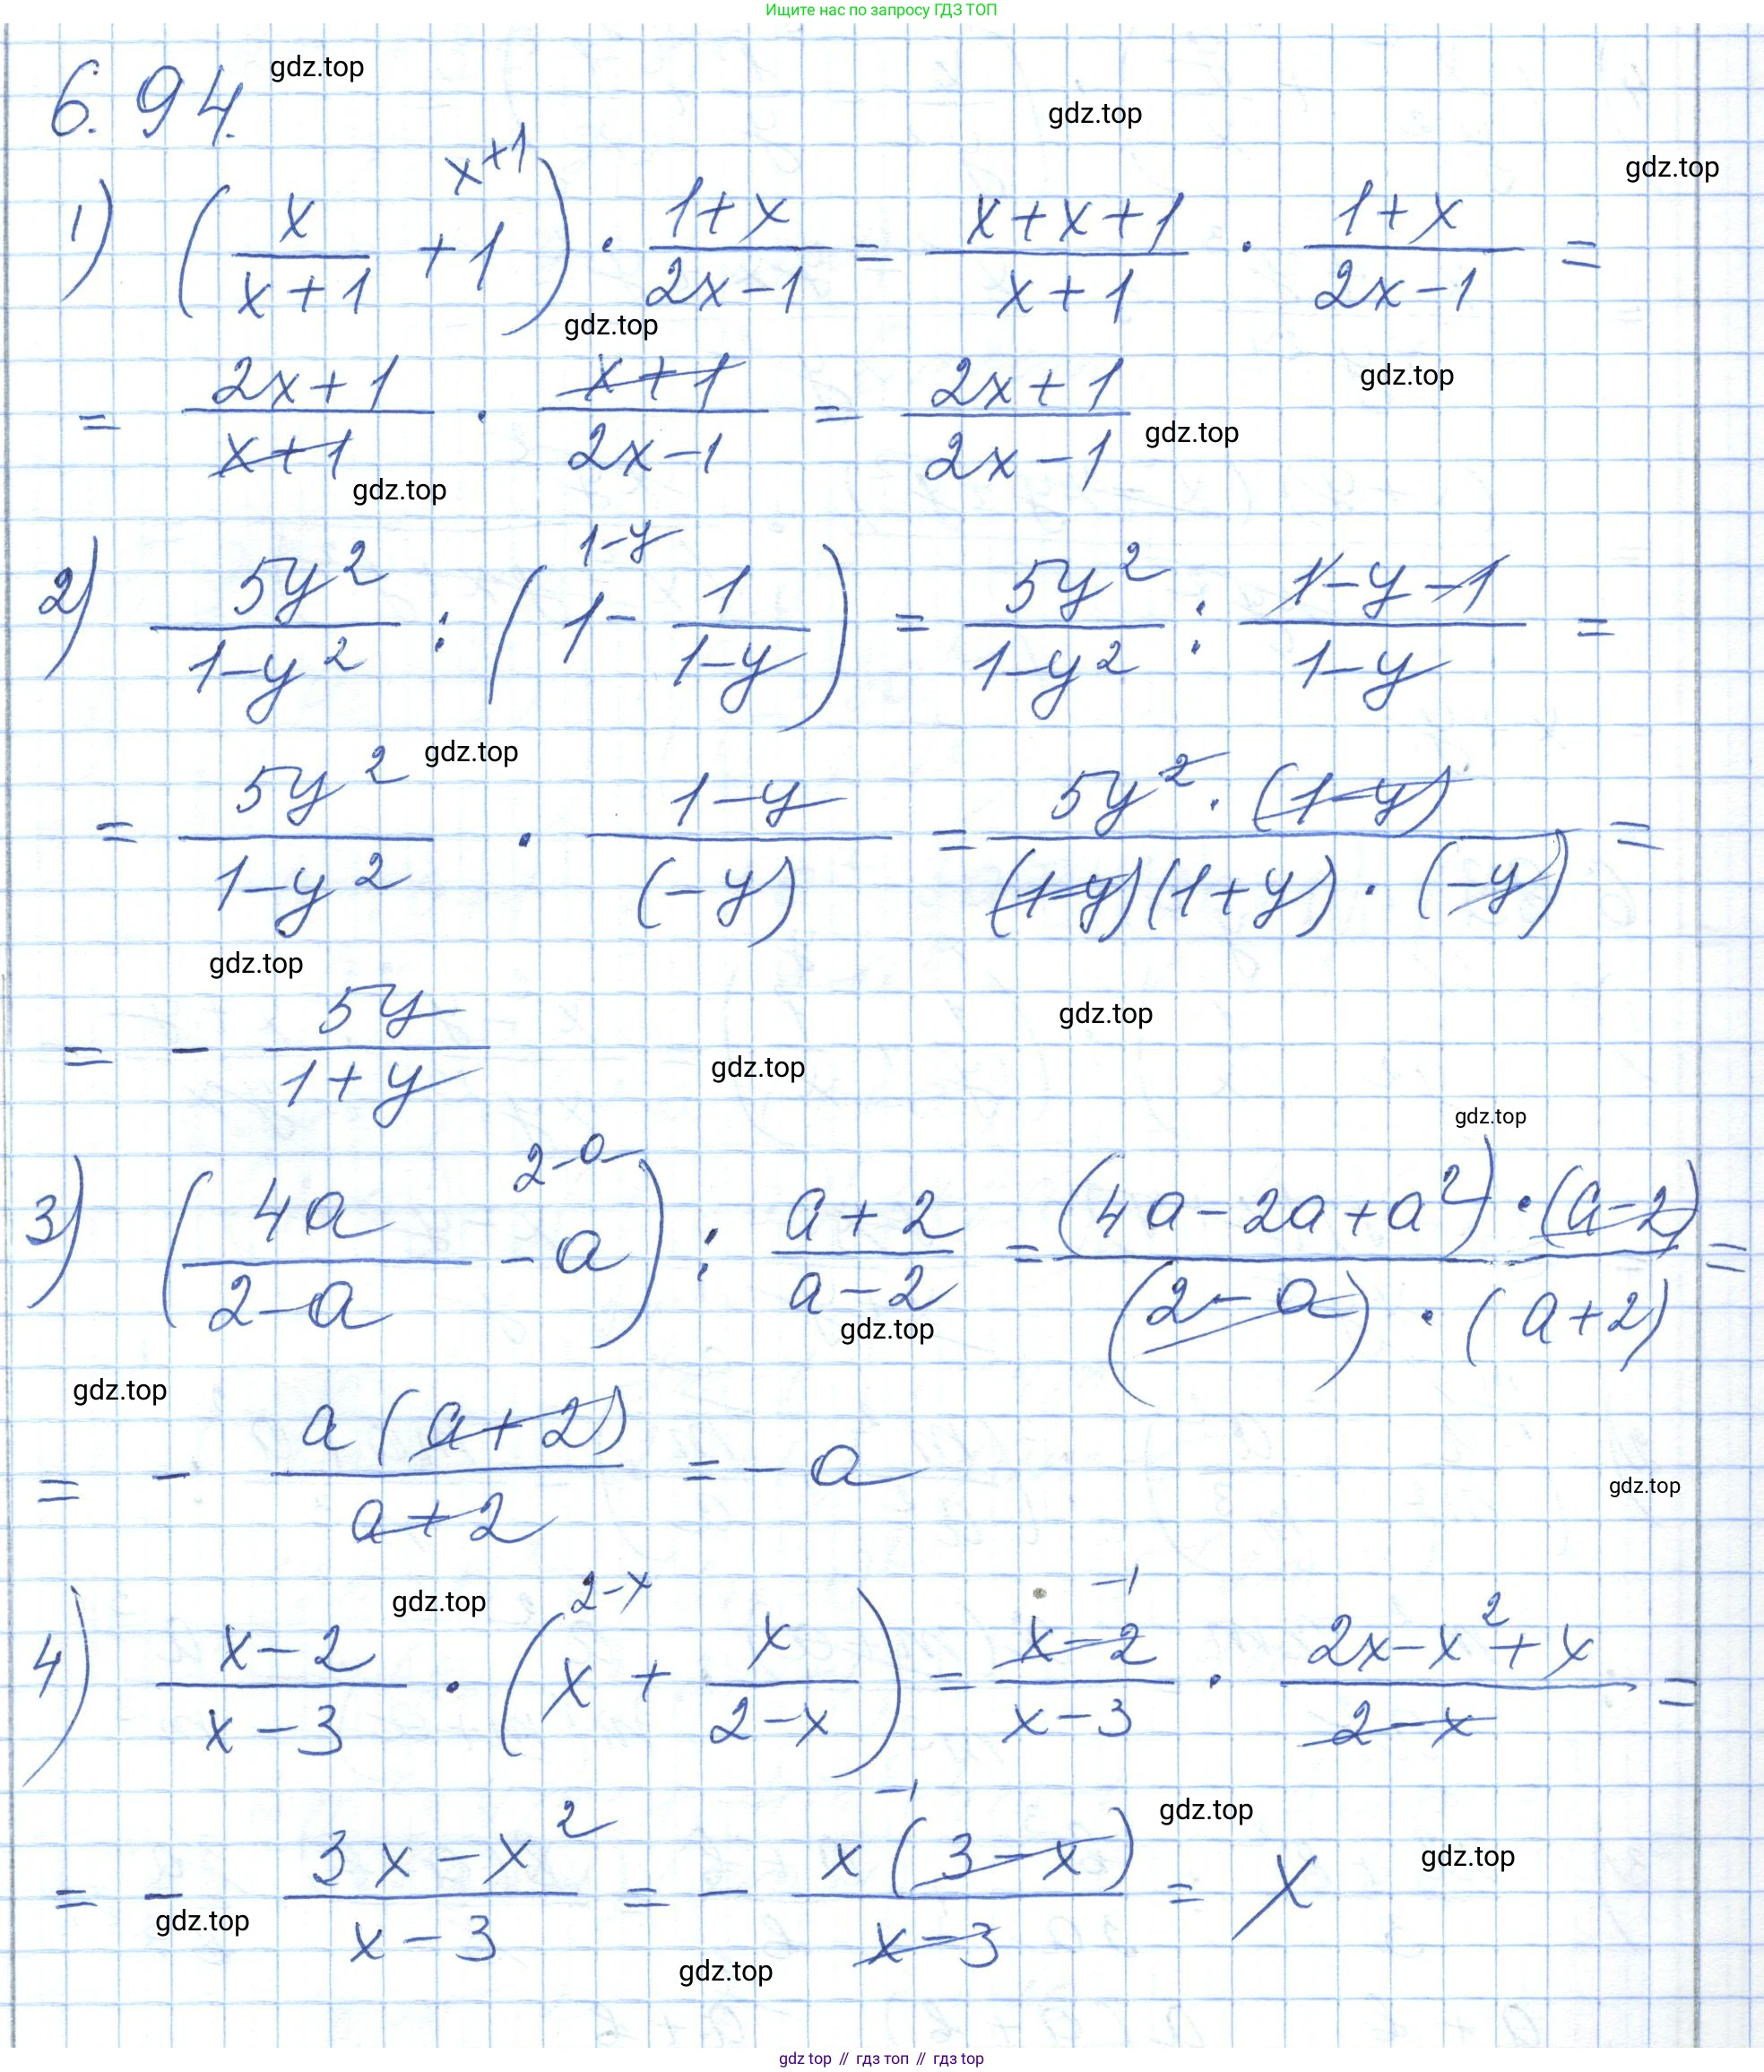 Ищите нас по запросу ГДЗ ТОП
6.94.
gdz.top
gdz.top
gdz.top
1) (x/(x+1) + 1^(x+1)) · (1+x)/(2x-1) = (x+x+1)/(x+1) · (1+x)/(2x-1) =
gdz.top
gdz.top
= (2x+1)/(x+1) · (x+1)/(2x-1) = (2x+1)/(2x-1)
gdz.top
gdz.top
2) 5y²/(1-y²) : (1^(1-y) - 1/(1-y)) = 5y²/(1-y²) : (1-y-1)/(1-y) =
gdz.top
= 5y²/(1-y²) · (1-y)/(-y) = 5y²·(1-y)/((1-y)(1+y)·(-y)) =
gdz.top
gdz.top
= - 5y/(1+y)
gdz.top
gdz.top
3) (4a/(2-a) - a^(2-a)) : (a+2)/(a-2) = (4a-2a+a²)·(a-2)/((2-a)·(a+2)) =
gdz.top
gdz.top
= - a(a+2)/(a+2) = -a
gdz.top
gdz.top
4) (x-2)/(x-3) · (x^(2-x) + x/(2-x)) = (x-2)^(-1)/(x-3) · (2x-x²+x)/(2-x) =
gdz.top
gdz.top
= - (3x-x²)/(x-3) = - x(3-x)^(-1)/(x-3) = x
gdz.top
gdz.top
gdz top // гдз топ // гдз top